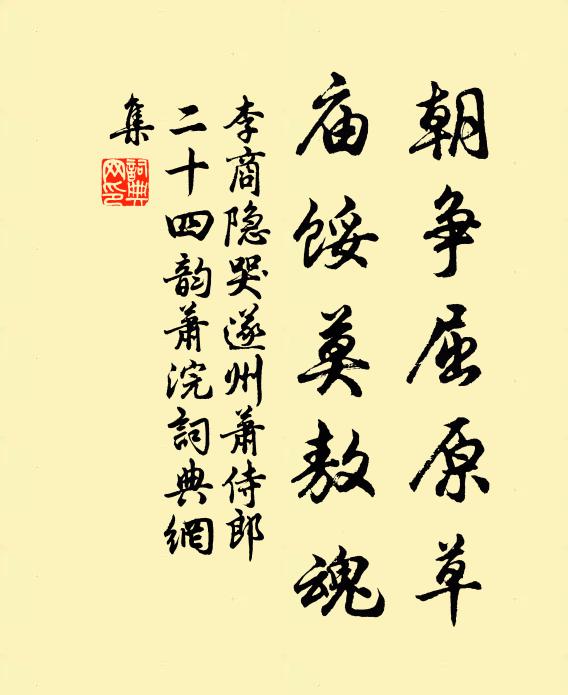 朝争屈原草
庙馁莫敖魂
李商隐哭遂州萧侍郎
二十四韵萧浣詞典網
集
詞典
网印